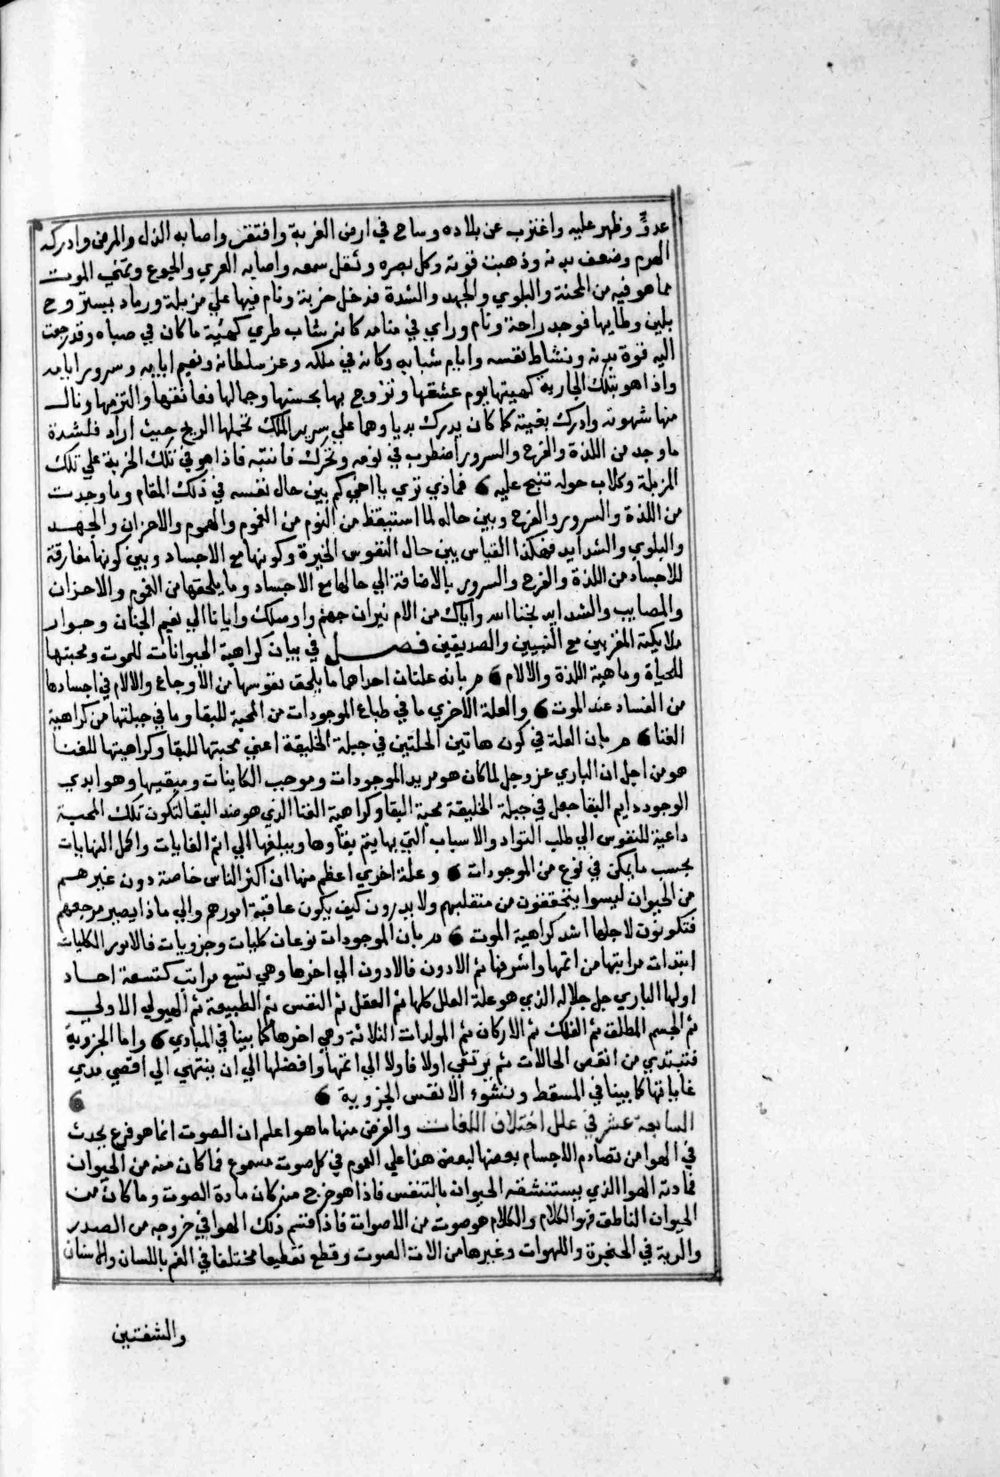 عدوٌّ وظهر عليه واغترب عن بلاده وساح في ارض الغربة وافتقر واصابه الذل والمرض وادركه
الهرم وضعف بدنه وذهبت قوته وكل بصره وثقل سمعه واصابه العري والجوع وتمني الموت
مما هو فيه من المحنة والبلوي والجهد والشدة فدخل خربة ونام فيها علي مزبلة ورماد يستروح
بلين وطايها فوجد راحة ونام وراي في منامه كانه شاب طري كهيئة ما كان في صباه وقد رجعت
اليه قوة بدنه ونشاط نفسه وايام شبابه وكانه في ملكه وعز سلطانه ونعيم ابايه وسرور ايامه
واذا هو بتلك الجارية كهيتها يوم عشقها وتزوج بها بحسنها وجمالها فعانقها والتزمها ونال
منها شهوته وادرك بغيته كما كان يدرك بديا وهما علي سرير الملك تحملها الريح حيث اراد فلشدة
ما وجد من اللذة والفرح والسرور اضطرب في نومه وتحرك فانتبه فاذا هو في تلك الخربة علي تلك
المزبلة وكلاب حوله تنبح عليه فماذي تري يا اخي كم بين حال نفسه في ذلك المقام وما وجدت
من اللذة والسرور والفرح وبين حاله لما استيقظ من النوم من الغموم والهموم والاحزان والجهد
والبلوي والشدايد فهكذا القياس بين حال النفوس الخيرة وكونها مع الاجساد وبين كونها مفارقة
للاجساد من اللذة والفرح والسرور بالاضافة الي حالها مع الاجساد وما يلحقها من الغموم والاحزان
والمصايب والشدايد نجنا الله واياك من الام نيران جهنم واوصلك وايانا الي نعيم الجنان وجوار
ملايكته المقربين مع النبيين والصديقين فصل في بيان كراهية الحيوانات للموت ومحبتها
للحياة وماهية اللذة والالام م بانه علتان احداهما ما يلحق نفوسها من الاوجاع والالام في اجسادها
من الفساد عند الموت والعلة الاخري ما في طباع الموجودات من المحبة للبقا وما في جبلتها من كراهية
الفنا م بان العلة في كون هاتين الخلتين في جبلة الخليقة اعني محبتها للبقا وكراهيتها للفنا
هو من اجل ان الباري عز وجل لما كان هو مريد الموجودات وموجب الكاينات ومبقيها وهو ابدي
الوجود دايم البقا جعل في جبلة الخليقة محبة البقا وكراهية الفنا الذي هو ضد البقا لتكون تلك المحبة
داعية للنفوس الي طلب التواد والاسباب التي بها يتم بقاوها ويبلغها الي اتم الغايات واكمل النهايات
بحسب ما يمكن في نوع من الموجودات وعلة اخري اعظم منها ان اكثر الناس خاصة دون غيرهم
من الحيوان ليسوا يتحققون من منقلبهم ولا يدرون كيف يكون عاقبة امورهم والي ماذا يصير مرجعهم
فتكونون لاجلها اشد كراهية الموت م بان الموجودات نوعان كليات وجزويات فالامور الكليات
ابتدات مراتبها من اتمها واشرفها ثم الادون فالادون الي اخرها وهي تسع مراتب كتسعة احاد
اولها الباري جل جلاله الذي هو علة العلل كلها ثم العقل ثم النفس ثم الطبيعة ثم الهيولي الاولي
ثم الجسم المطلق ثم الفلك ثم الاركان ثم المولدات الثلاثة وهي اخرها كما بينا في المبادي واما الجزوية
فتبتدي من انقص الحالات ثم يرتقي اولا فاولا الي اتمها وافضلها الي ان ينتهي الي اقصي مدي
غاياتها كما بينا في المسقط ونشوء الانفس الجزوية
السابعة عشر في علل اختلاف اللغات والغرض منها ما هو اعلم ان الصوت انما هو قرع يحدث
في الهوا من تصادم الاجسام بعضها لبعض هذا علي العموم في كل صوت مسموع فما كان منه من الحيوان
فمادته الهوا الذي يستنشقه الحيوان بالتنفس فاذا هو خرج منه كان مادة الصوت وما كان من
الحيوان الناطق فهو الكلام والكلام هو صوت من الاصوات فاذا قسم ذلك الهوا في خروجه من الصدر
والرية في الحنجرة واللهوات وغيرها من الات الصوت وقطع تقطيعا مختلفا في الفم باللسان والاسنان
والشفتين